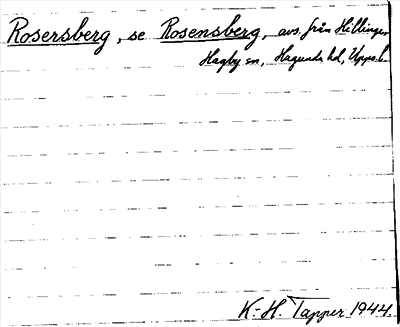 Rosersberg, se Rosensberg, avs. från Hällingen
Hagby sn, Hagunda hd, Upps. l.
K.-H. Tapper 1944.